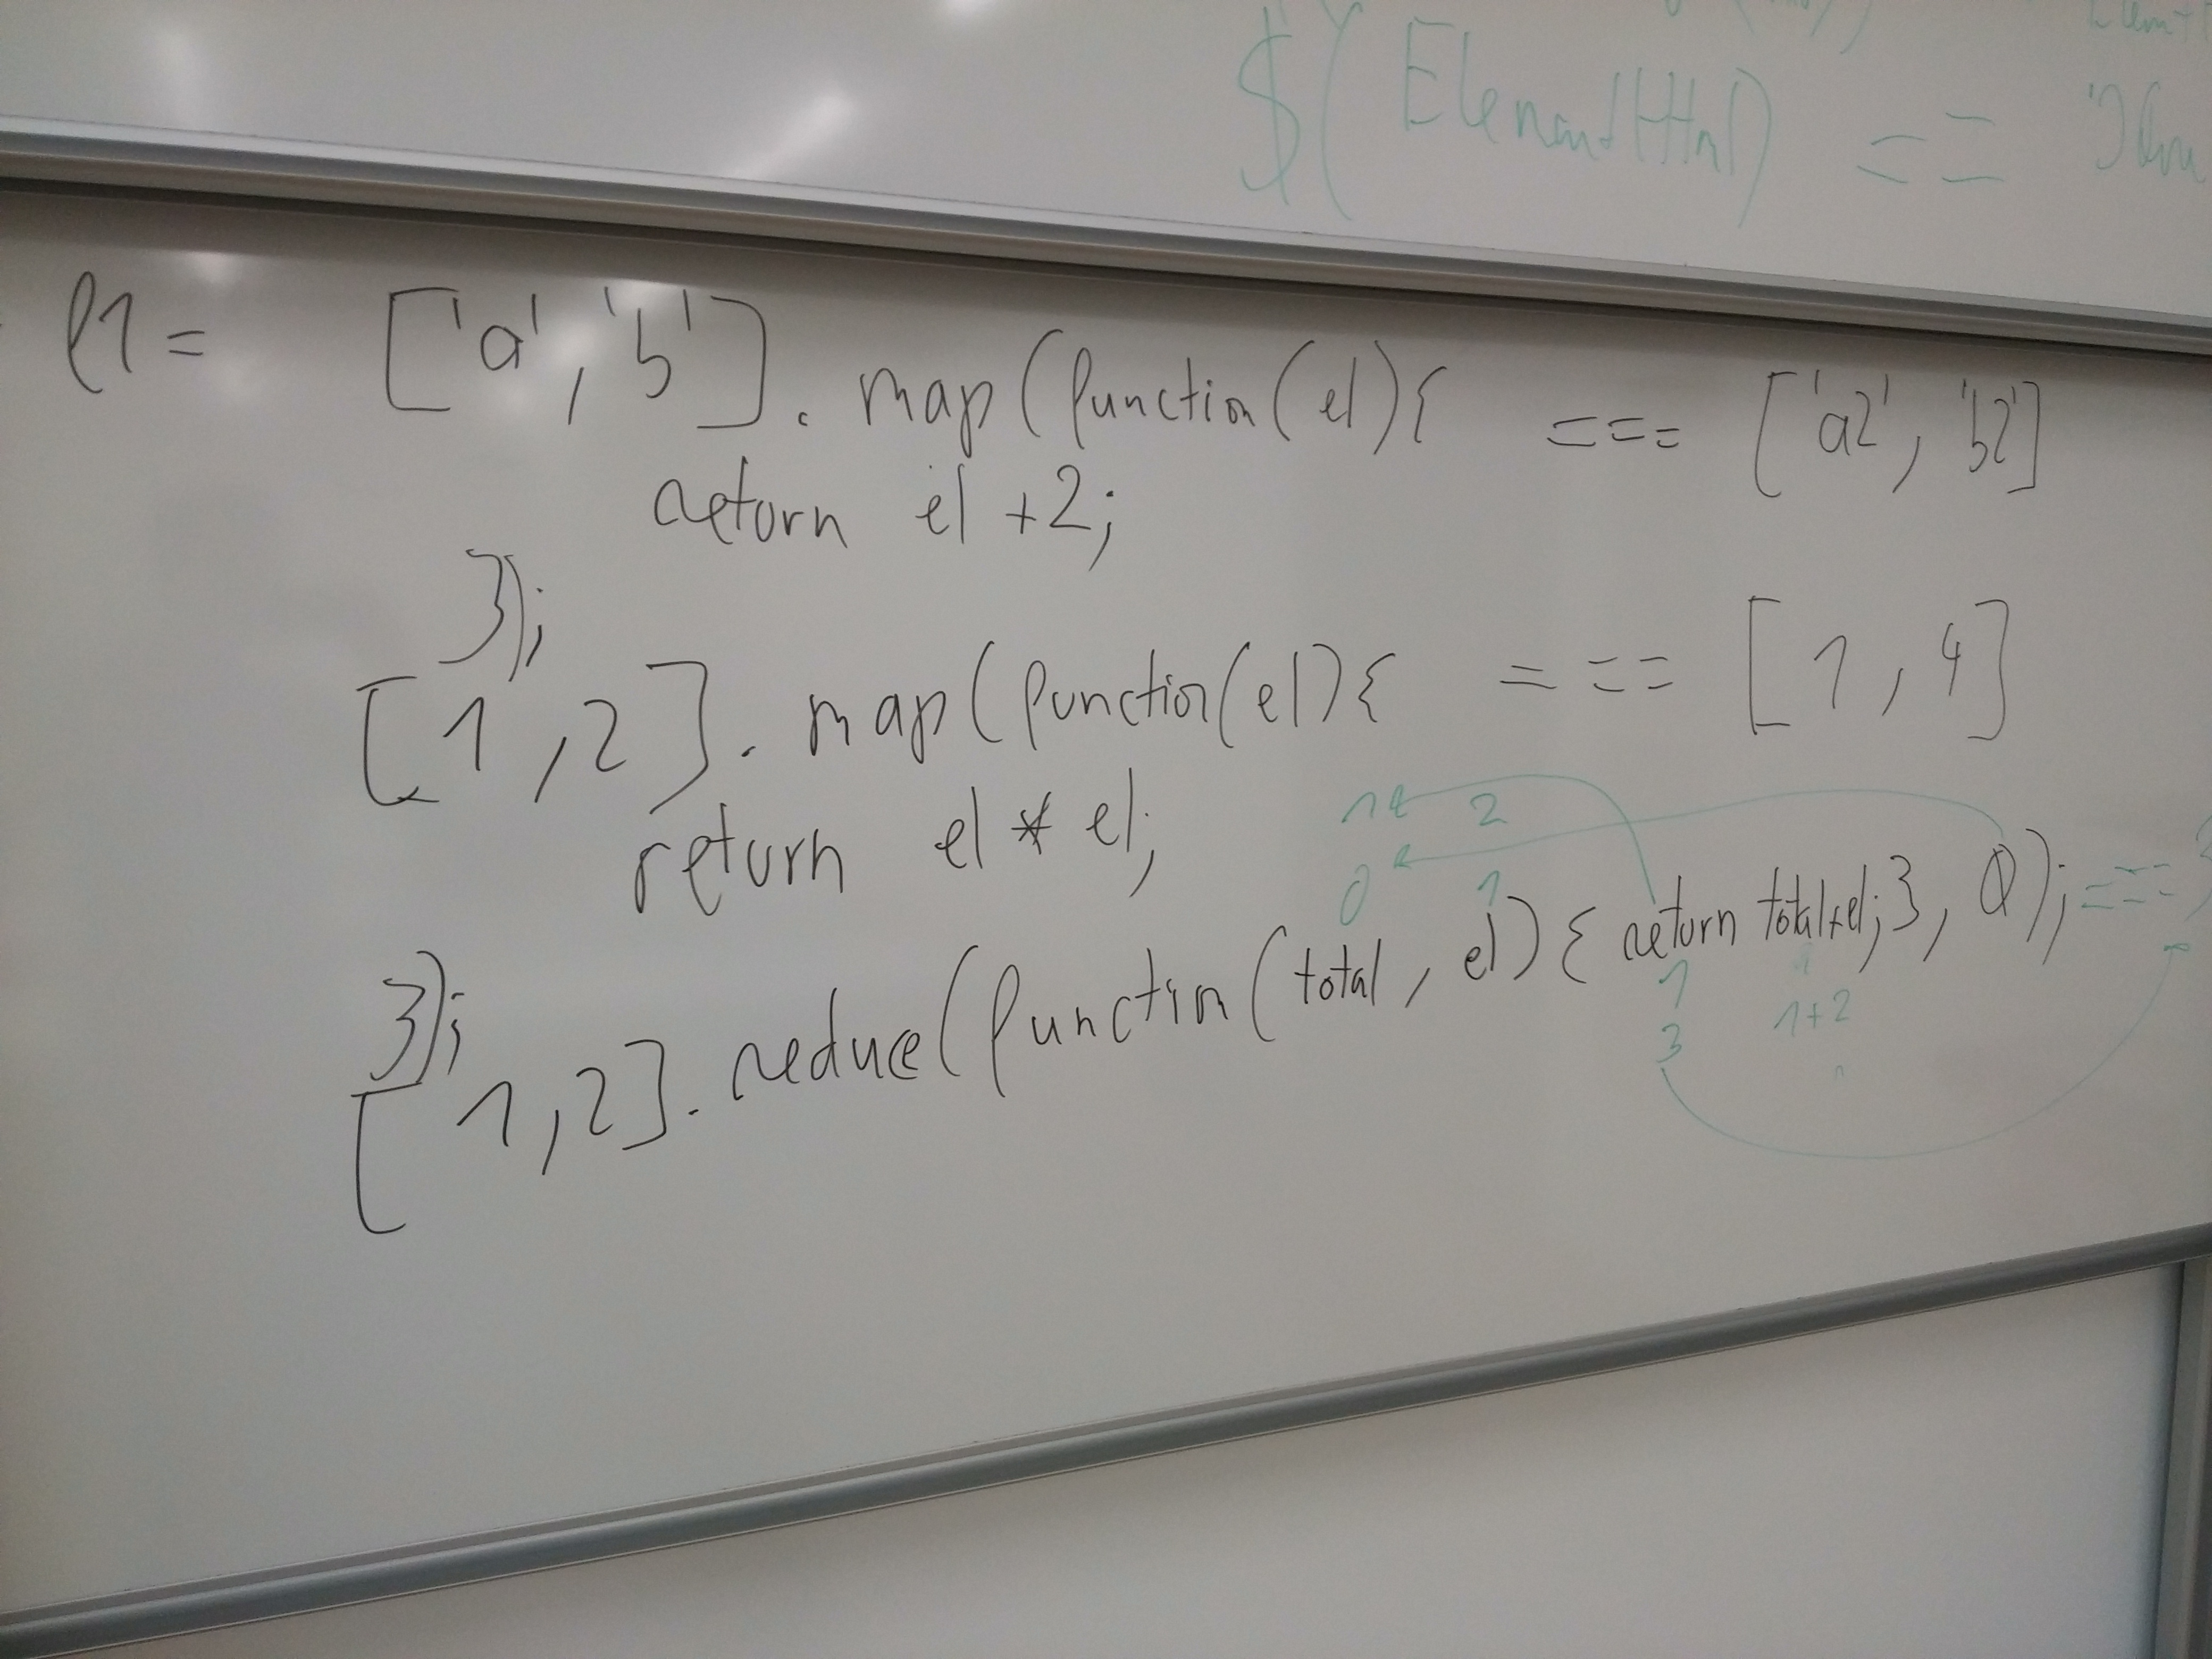 $(ElementHtml) ==
l1 = ['a', 'b'].map(function(el){ === ['a2', 'b2']
return el +2;
});
[1,2].map(function(el){ === [1,4]
return el * el;
1 2
0 1
});
[1,2].reduce(function(total, el){ return total+el;}, 0); ===
1
3 1+2